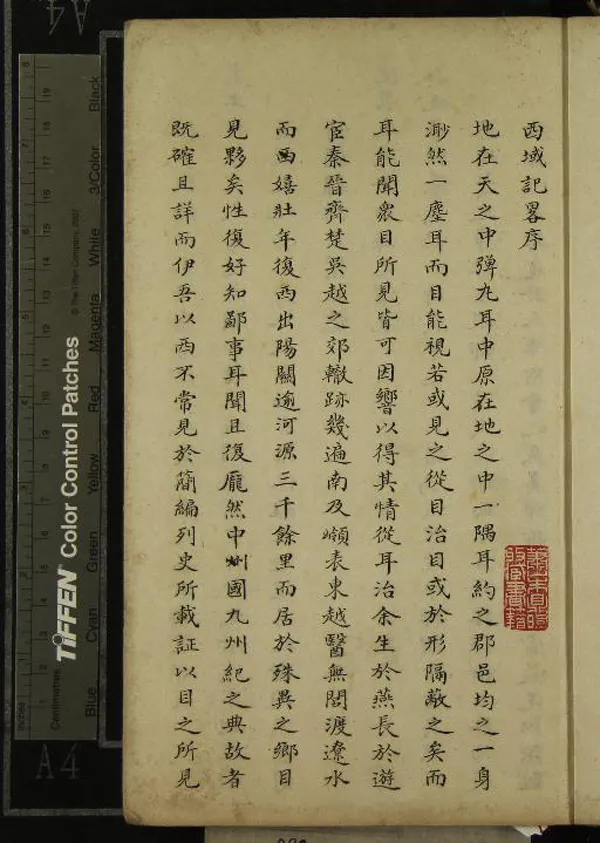 西域記畧序
地在天之中彈丸耳中原在地之中一隅耳約之郡邑均之一身
渺然一塵耳而目能視若或見之從目治目或於形隔蔽之矣而
耳能聞衆目所見皆可因響以得其情從耳治余生於燕長於遊
宦秦晉齊楚吳越之郊轍跡幾遍南及嶺表東越醫無閭渡遼水
而西嬉壯年復西出陽關逾河源三千餘里而居於殊異之鄉目
見夥矣性復好知鄙事耳聞且復龐然中州國九州紀之典故者
既確且詳而伊吾以西不常見於簡編列史所載証以目之所見
TIFFEN Color Control Patches
© The Tiffen Company, 2007
Centimetres
Inches
Blue
Cyan
Green
Yellow
Red
Magenta
White
3/Color
Black
A4